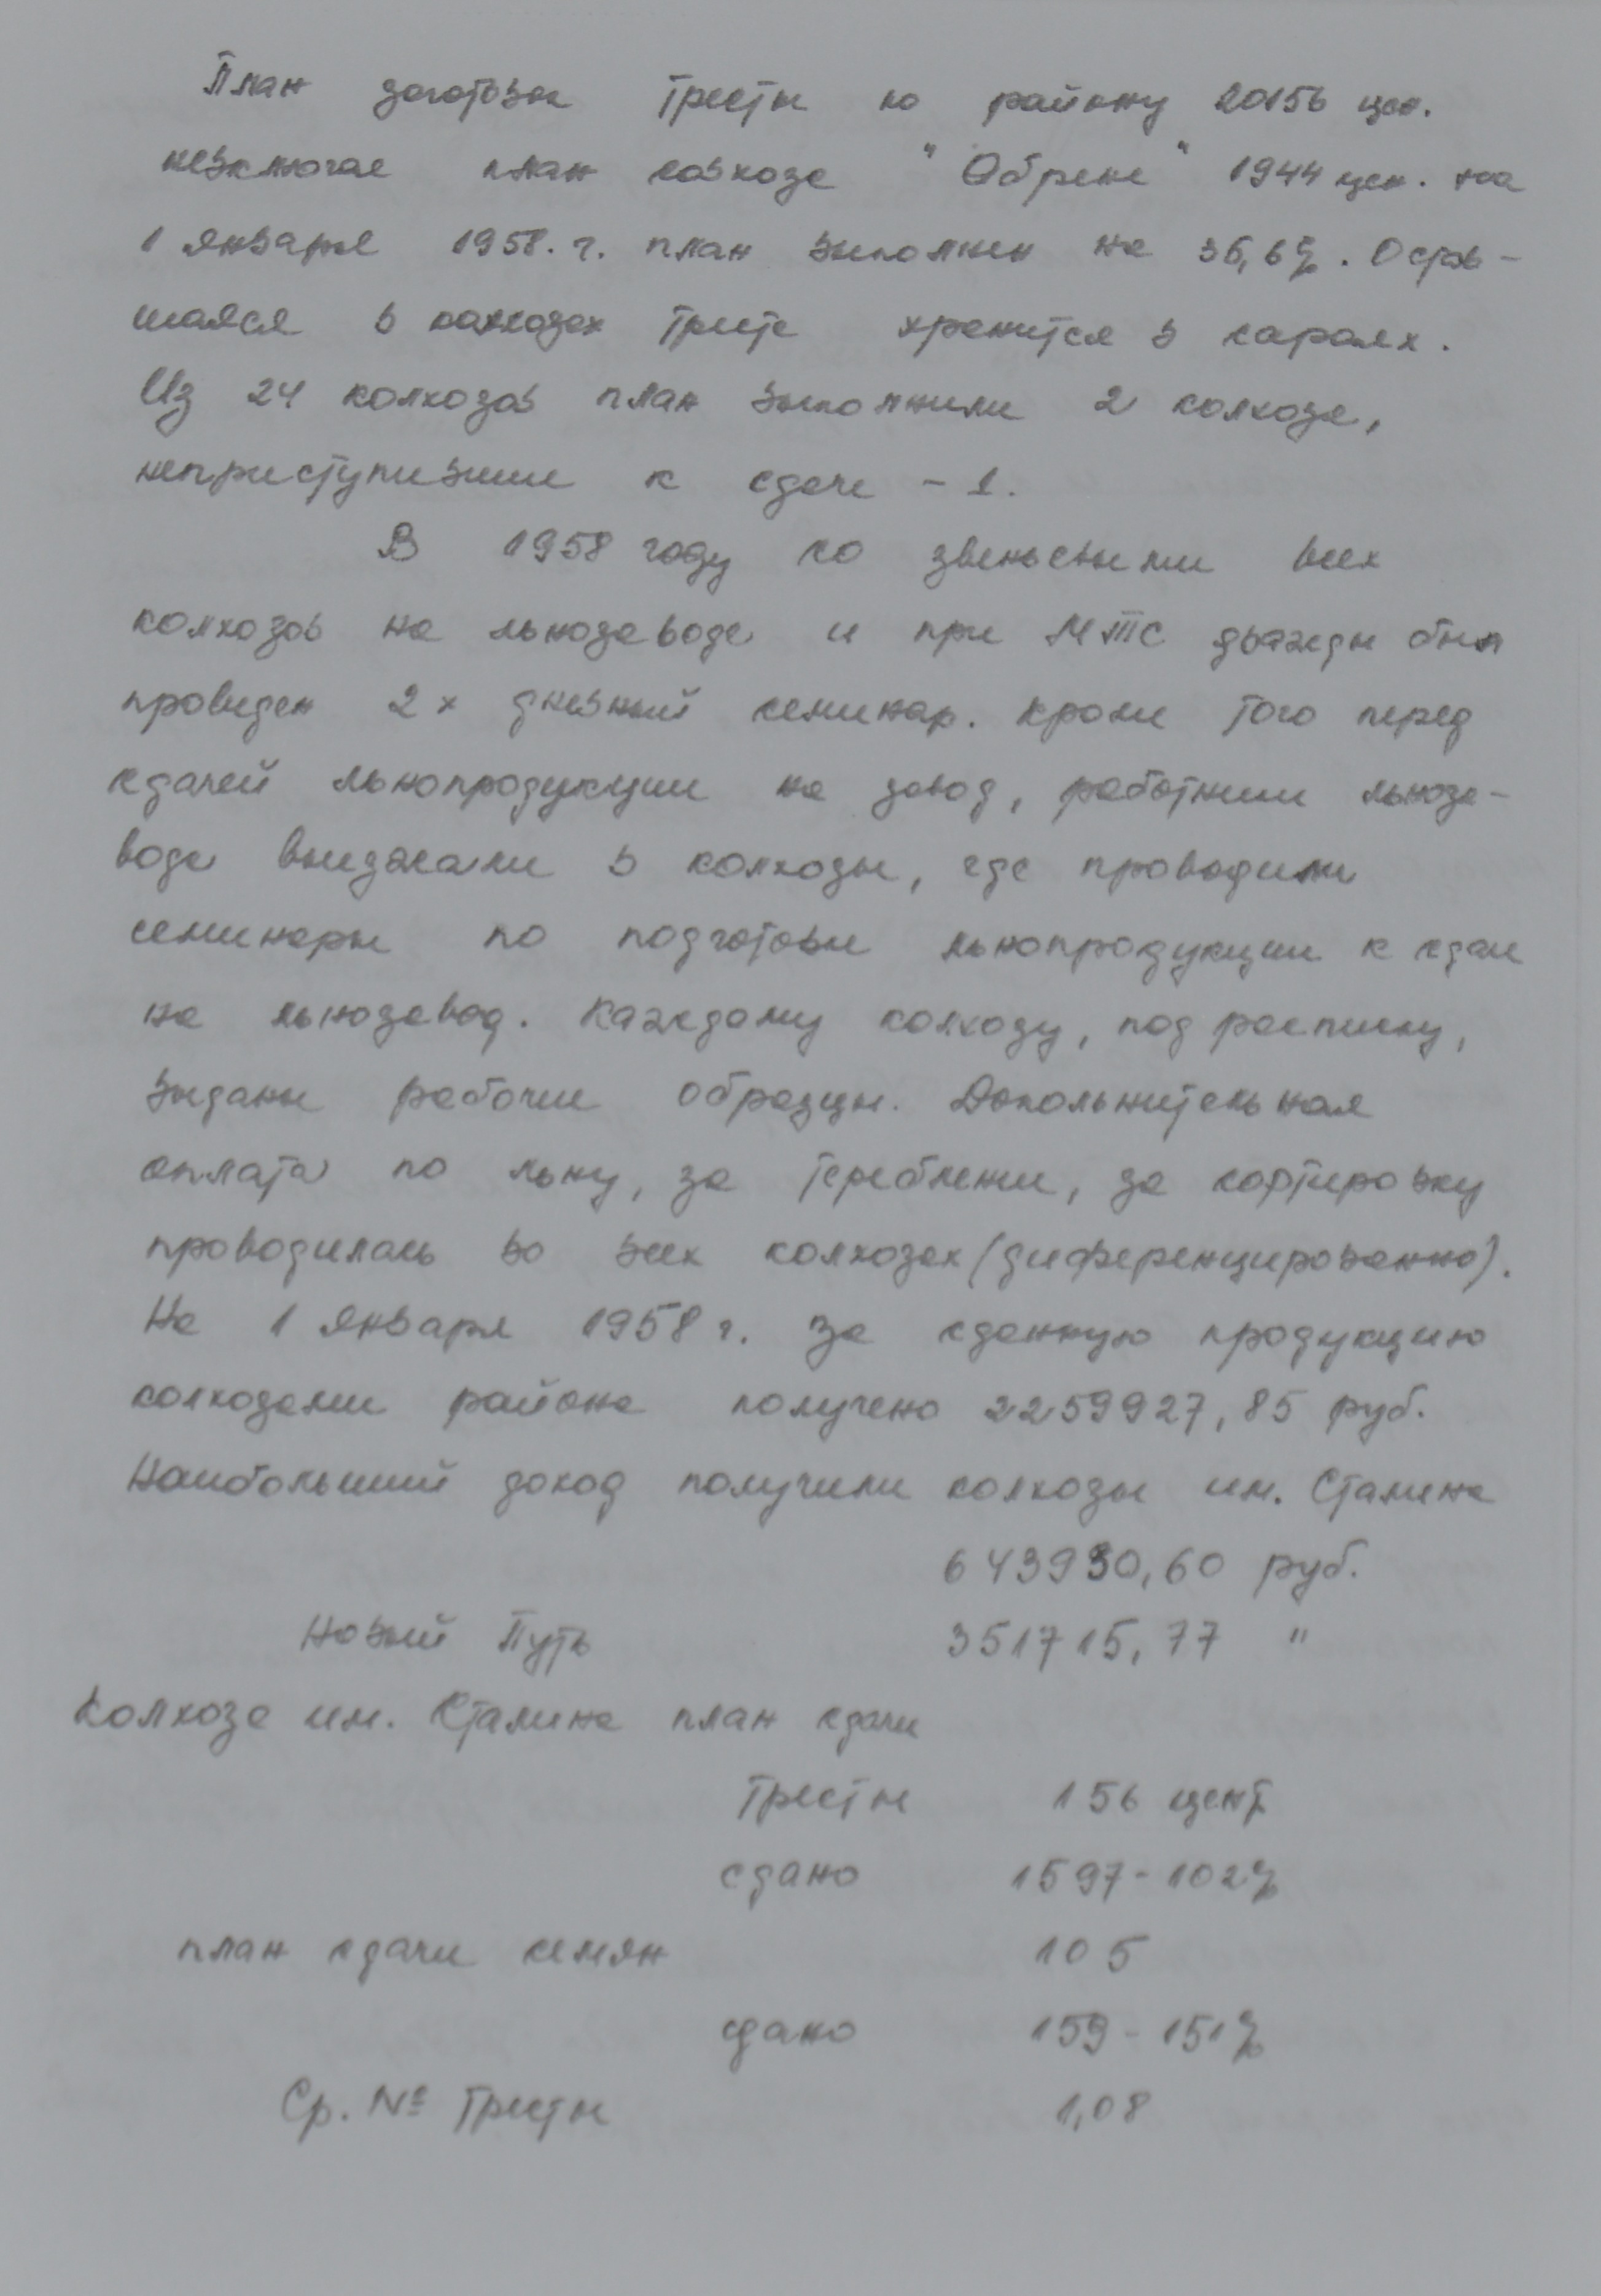 План заготовки тресты по району 20156 цен.
невключая план совхоза "Абрене" 1944 цен. на
1 января 1958. г. план выполнен на 36,6%. Остав-
шаяся в колхозах треста хранится в сараях.
Из 24 колхозов план выполнили 2 колхоза,
неприступившие к сдаче - 1.
В 1958 году со звеньевыми всех
колхозов на льнозаводе и при МТС дважды был
проведен 2х дневный семинар. Кроме того перед
сдачей льнопродукции на завод, работники льноза-
вода выезжали в колхозы, где проводили
семинары по подготовки льнопродукции к сдачи
на льнозавод. Каждому колхозу, под расписку,
выданы рабочие образцы. Допольнительная
оплата по льну, за теребление, за сортировку
проводилась во всех колхозах (диференцированно).
На 1 января 1958 г. за сданную продукцию
колхозами района получено 2259927,85 руб.
Наибольший доход получили колхозы им. Сталина
643930,60 руб.
Новый Путь 351715,77 "
Колхоза им. Сталина план сдачи
тресты 156 цент
сдано 1597 - 102%
план сдачи семян 105
сдано 159 - 151%
Ср. № тресты 1,08